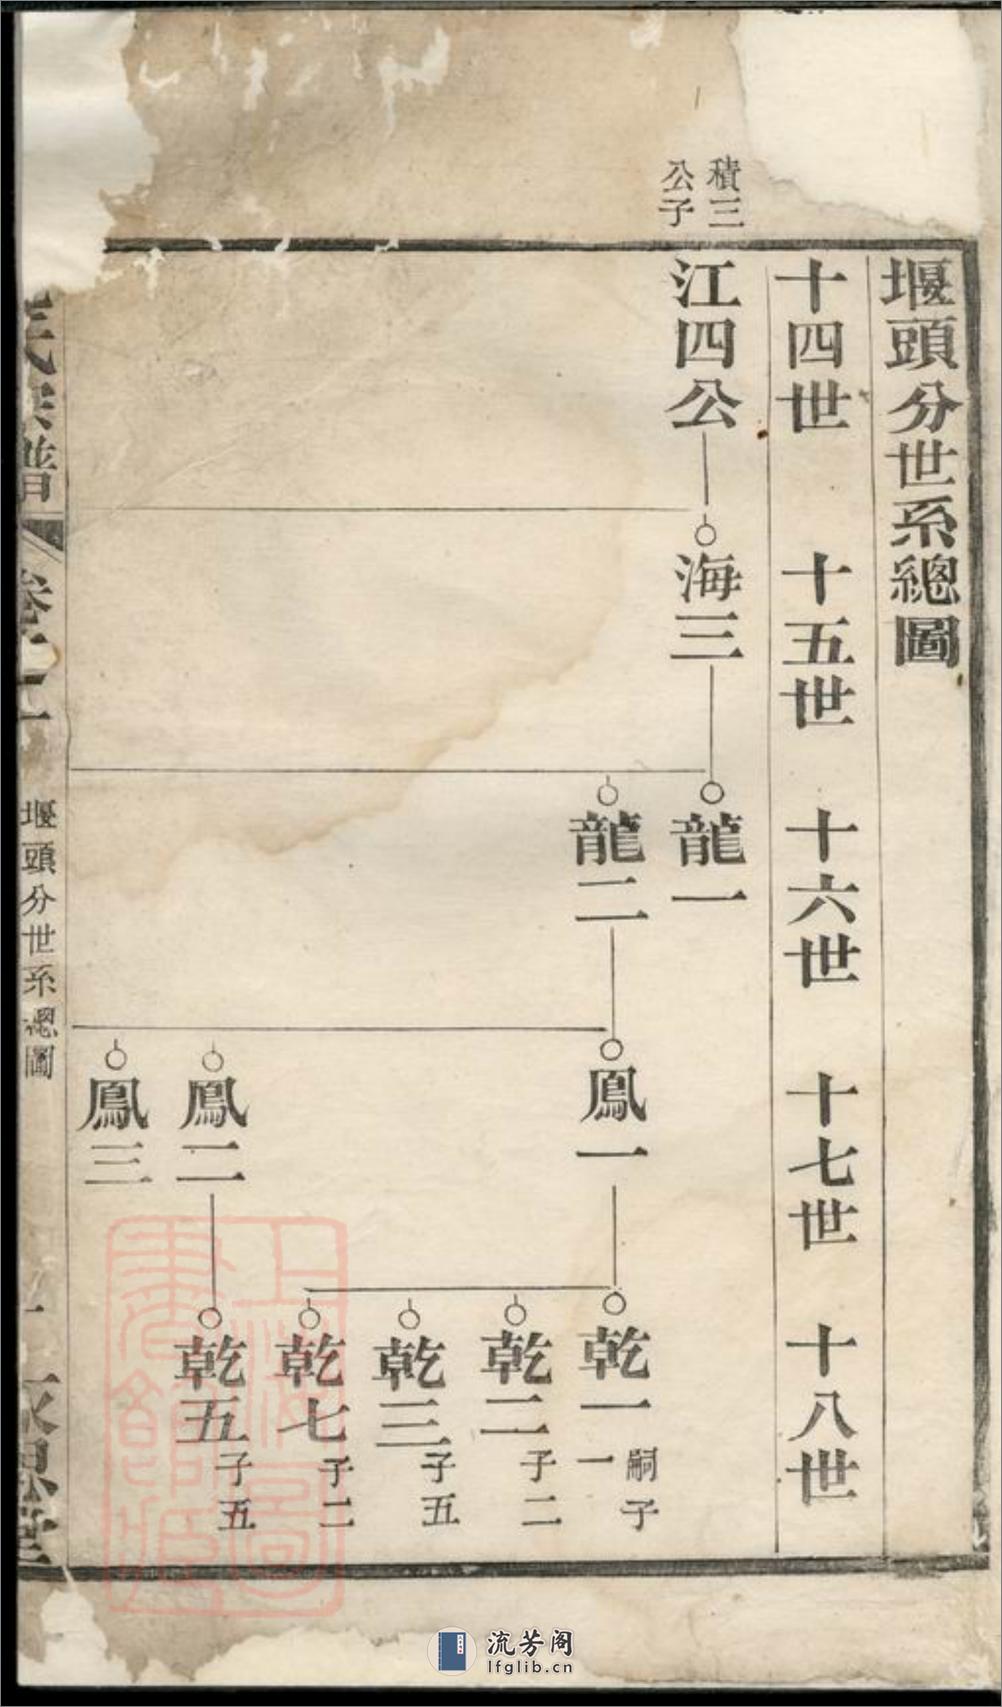 堰頭分世系總圖
十四世　十五世　十六世　十七世　十八世
積三
公子
江四公
海三
龍一
龍二
鳳一
鳳二
鳳三
乾一　嗣子一
乾二　子二
乾三　子五
乾七　子二
乾五　子五
氏宗譜　卷之　堰頭分世系總圖
上海圖書館藏
流芳阁
lfglib.cn